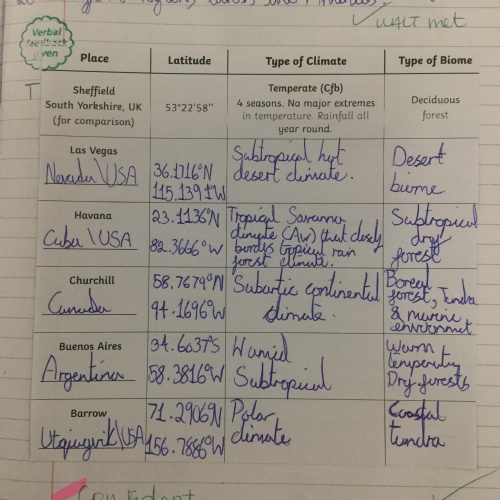 WALT met
Verbal
feedback
given
Place Latitude Type of Climate Type of Biome
Sheffield
South Yorkshire, UK
(for comparison)
53°22'58"
Temperate (Cfb)
4 seasons. No major extremes
in temperature. Rainfall all
year round.
Deciduous
forest
Las Vegas
Nevada \USA
36.1716°N
115.1391°W
Subtropical hot
desert climate.
Desert
biome
Havana
Cuba \USA
23.1136°N
82.3666°W
Tropical Savanna
climate (Aw) that closely
borders tropical rain
forest climate.
Subtropical
dry
forest
Churchill
Canada
58.7679°N
94.1696°W
Subartic continental
climate.
Boreal
forest, Tundra
& marine
environment
Buenos Aires
Argentina
34.6037°S
58.3816°W
Humid
Subtropical
Warm
temperate
Dry forests
Barrow
Utqiagvik \USA
71.2906°N
156.7886°W
Polar
climate
Coastal
tundra